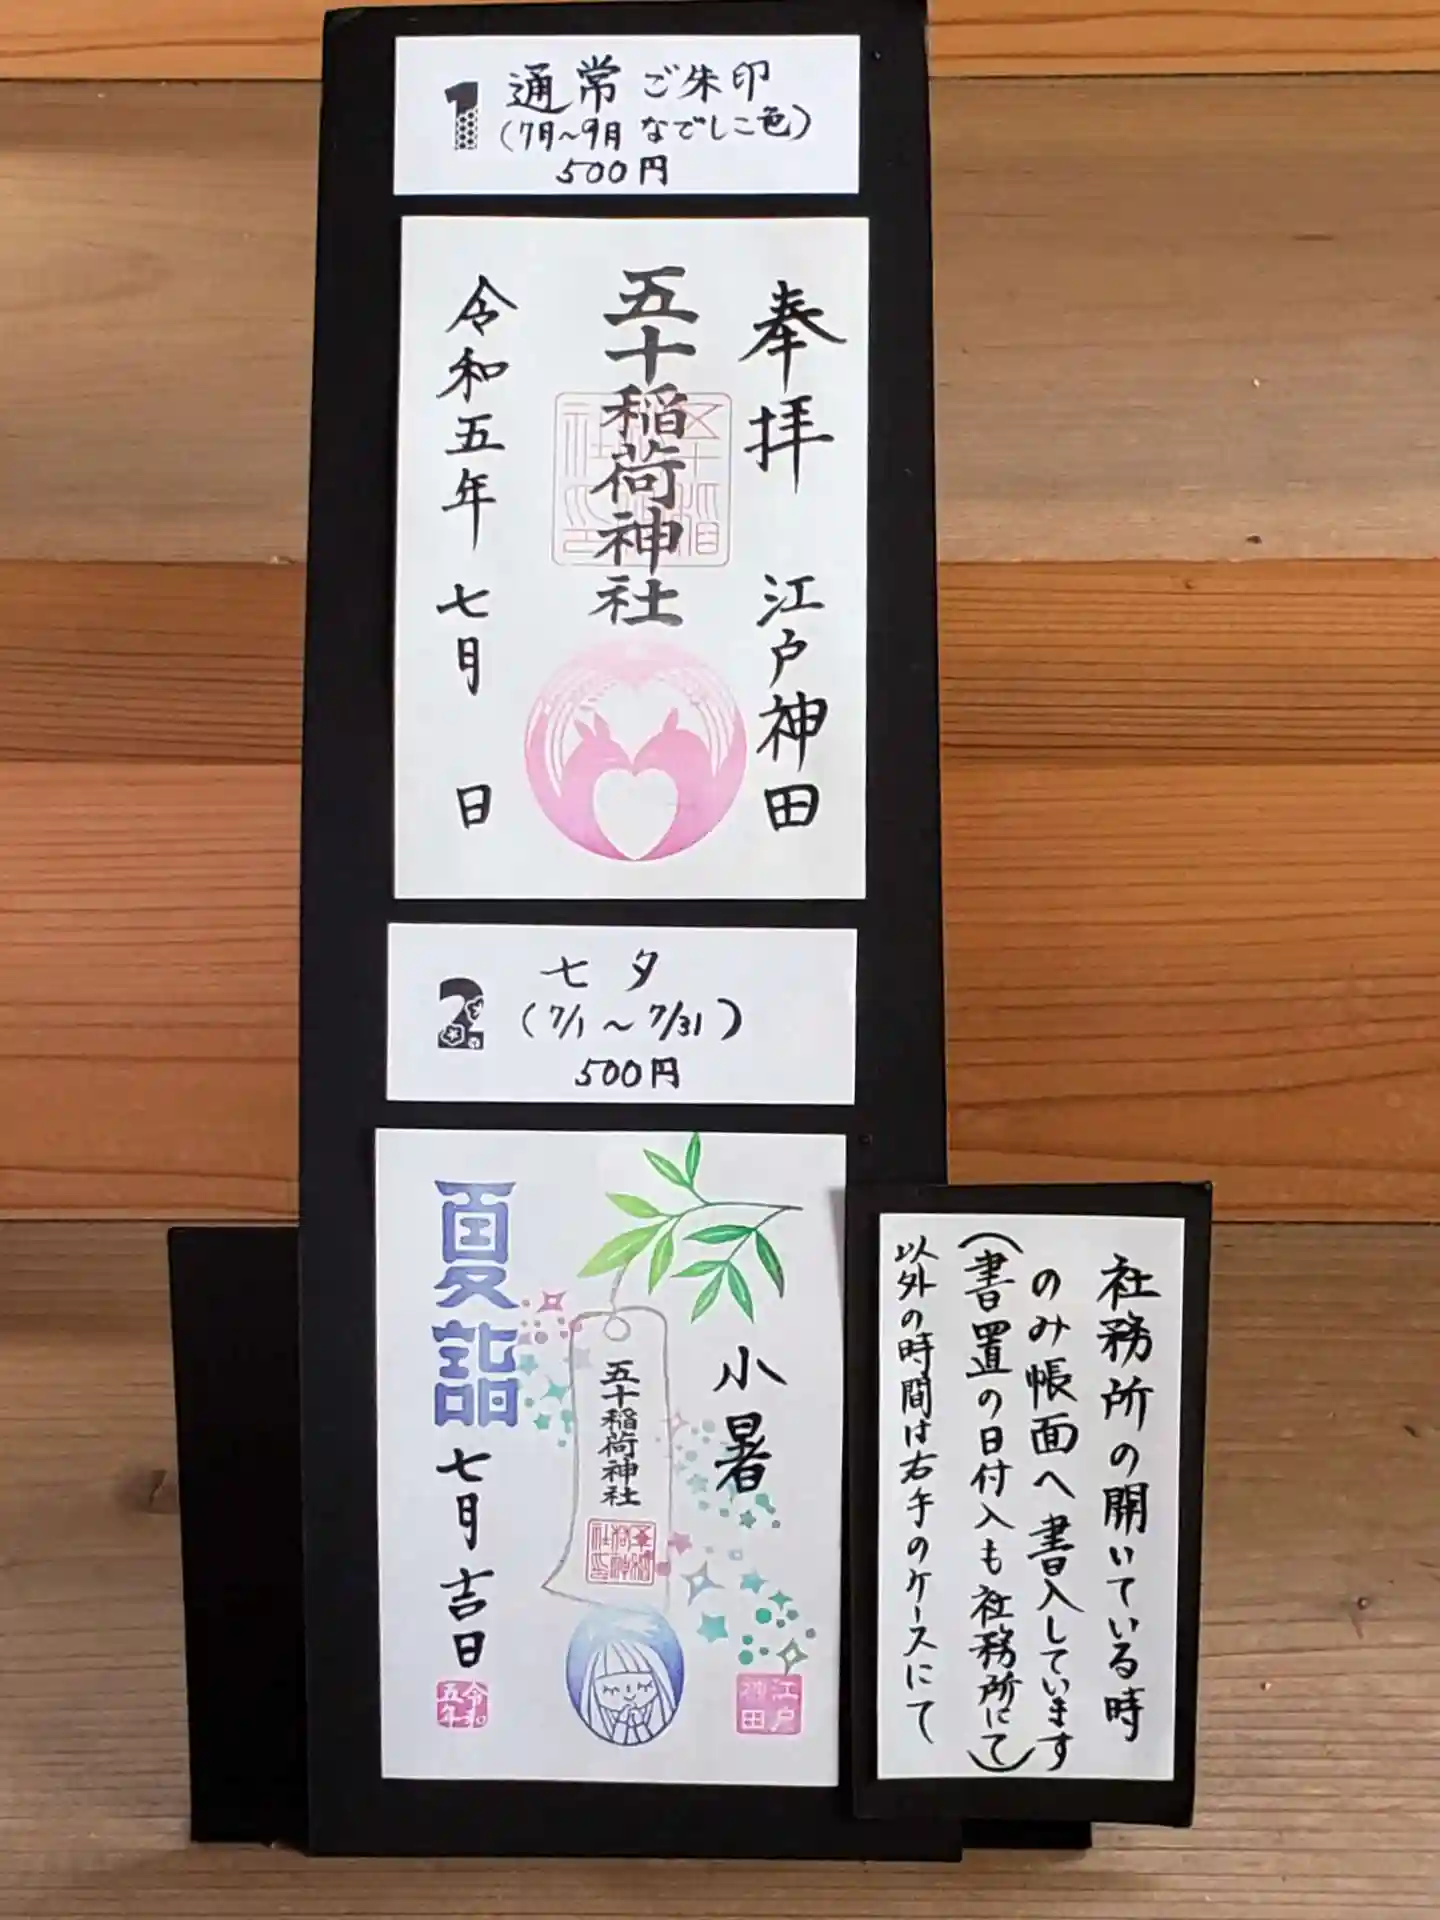 1 通常 ご朱印
(7月~9月 なでしこ色)
500円
奉拝 江戸神田
五十稲荷神社
令和五年 七月 日
2 七夕
(7/1~7/31)
500円
小暑
五十稲荷神社
夏詣
七月吉日
江戸
神田
令和
五年
社務所の開いている時
のみ帳面へ書入しています
(書置の日付入も社務所にて)
以外の時間は右手のケースにて